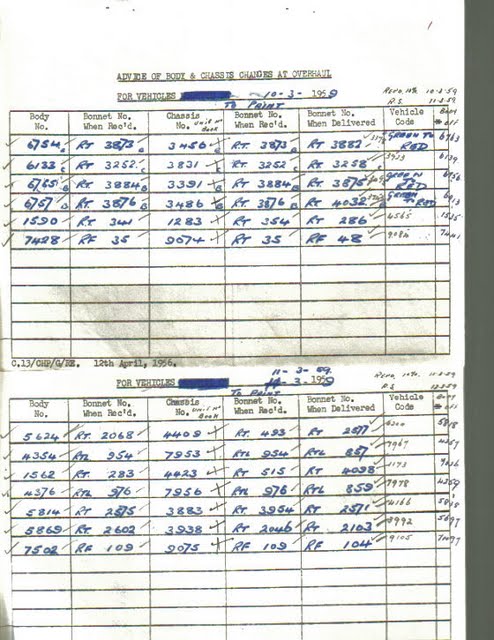 1
ADVICE OF BODY & CHASSIS CHANGES AT OVERHAUL
FOR VEHICLES 10-3-1959
TO PAINT
10-3-59
R.S. 11-3-59
Body No. Bonnet No. When Rec'd. Chassis No. Unit No Book Bonnet No. When Rec'd. Bonnet No. When Delivered Vehicle Code Body
6754 RT 3873 3456 RT. 3873 RT 3882 GREEN TO RED 6763
6133 RT 3252 3831 RT 3252 RT 3258 6139
RT 3884 3391 RT 3884 RT 3875 GREEN RED
6757 RT 3876 3486 RT 3876 RT 4032 GREEN RED
1590 RT 341 1283 RT 354 RT 286 4565
7428 RF 35 9074 RT 35 RF 48
C.13/CHP/G/RE. 12th April, 1956.
11-3-59
FOR VEHICLES 1959
TO PAINT
R.S.
Body No. Bonnet No. When Rec'd. Chassis No. Unit No Book Bonnet No. When Rec'd. Bonnet No. When Delivered Vehicle Code
5624 RT 2068 4409 RT. 493 RT 4300 5818
4354 RTL 954 7953 RTL 954 RTL 857 7967 4357
1562 RT. 283 4423 RT 515 RT 4098 1173
4376 RTL 976 7956 RTL 976 RTL 859 7978 4359
5814 RT 2575 3883 RT 3954 RT 2571 4166
5869 RT 2602 3938 RT 2046 RT 2103 3992 5697
7502 RF 109 9075 RF 109 RF 104 9105 7497